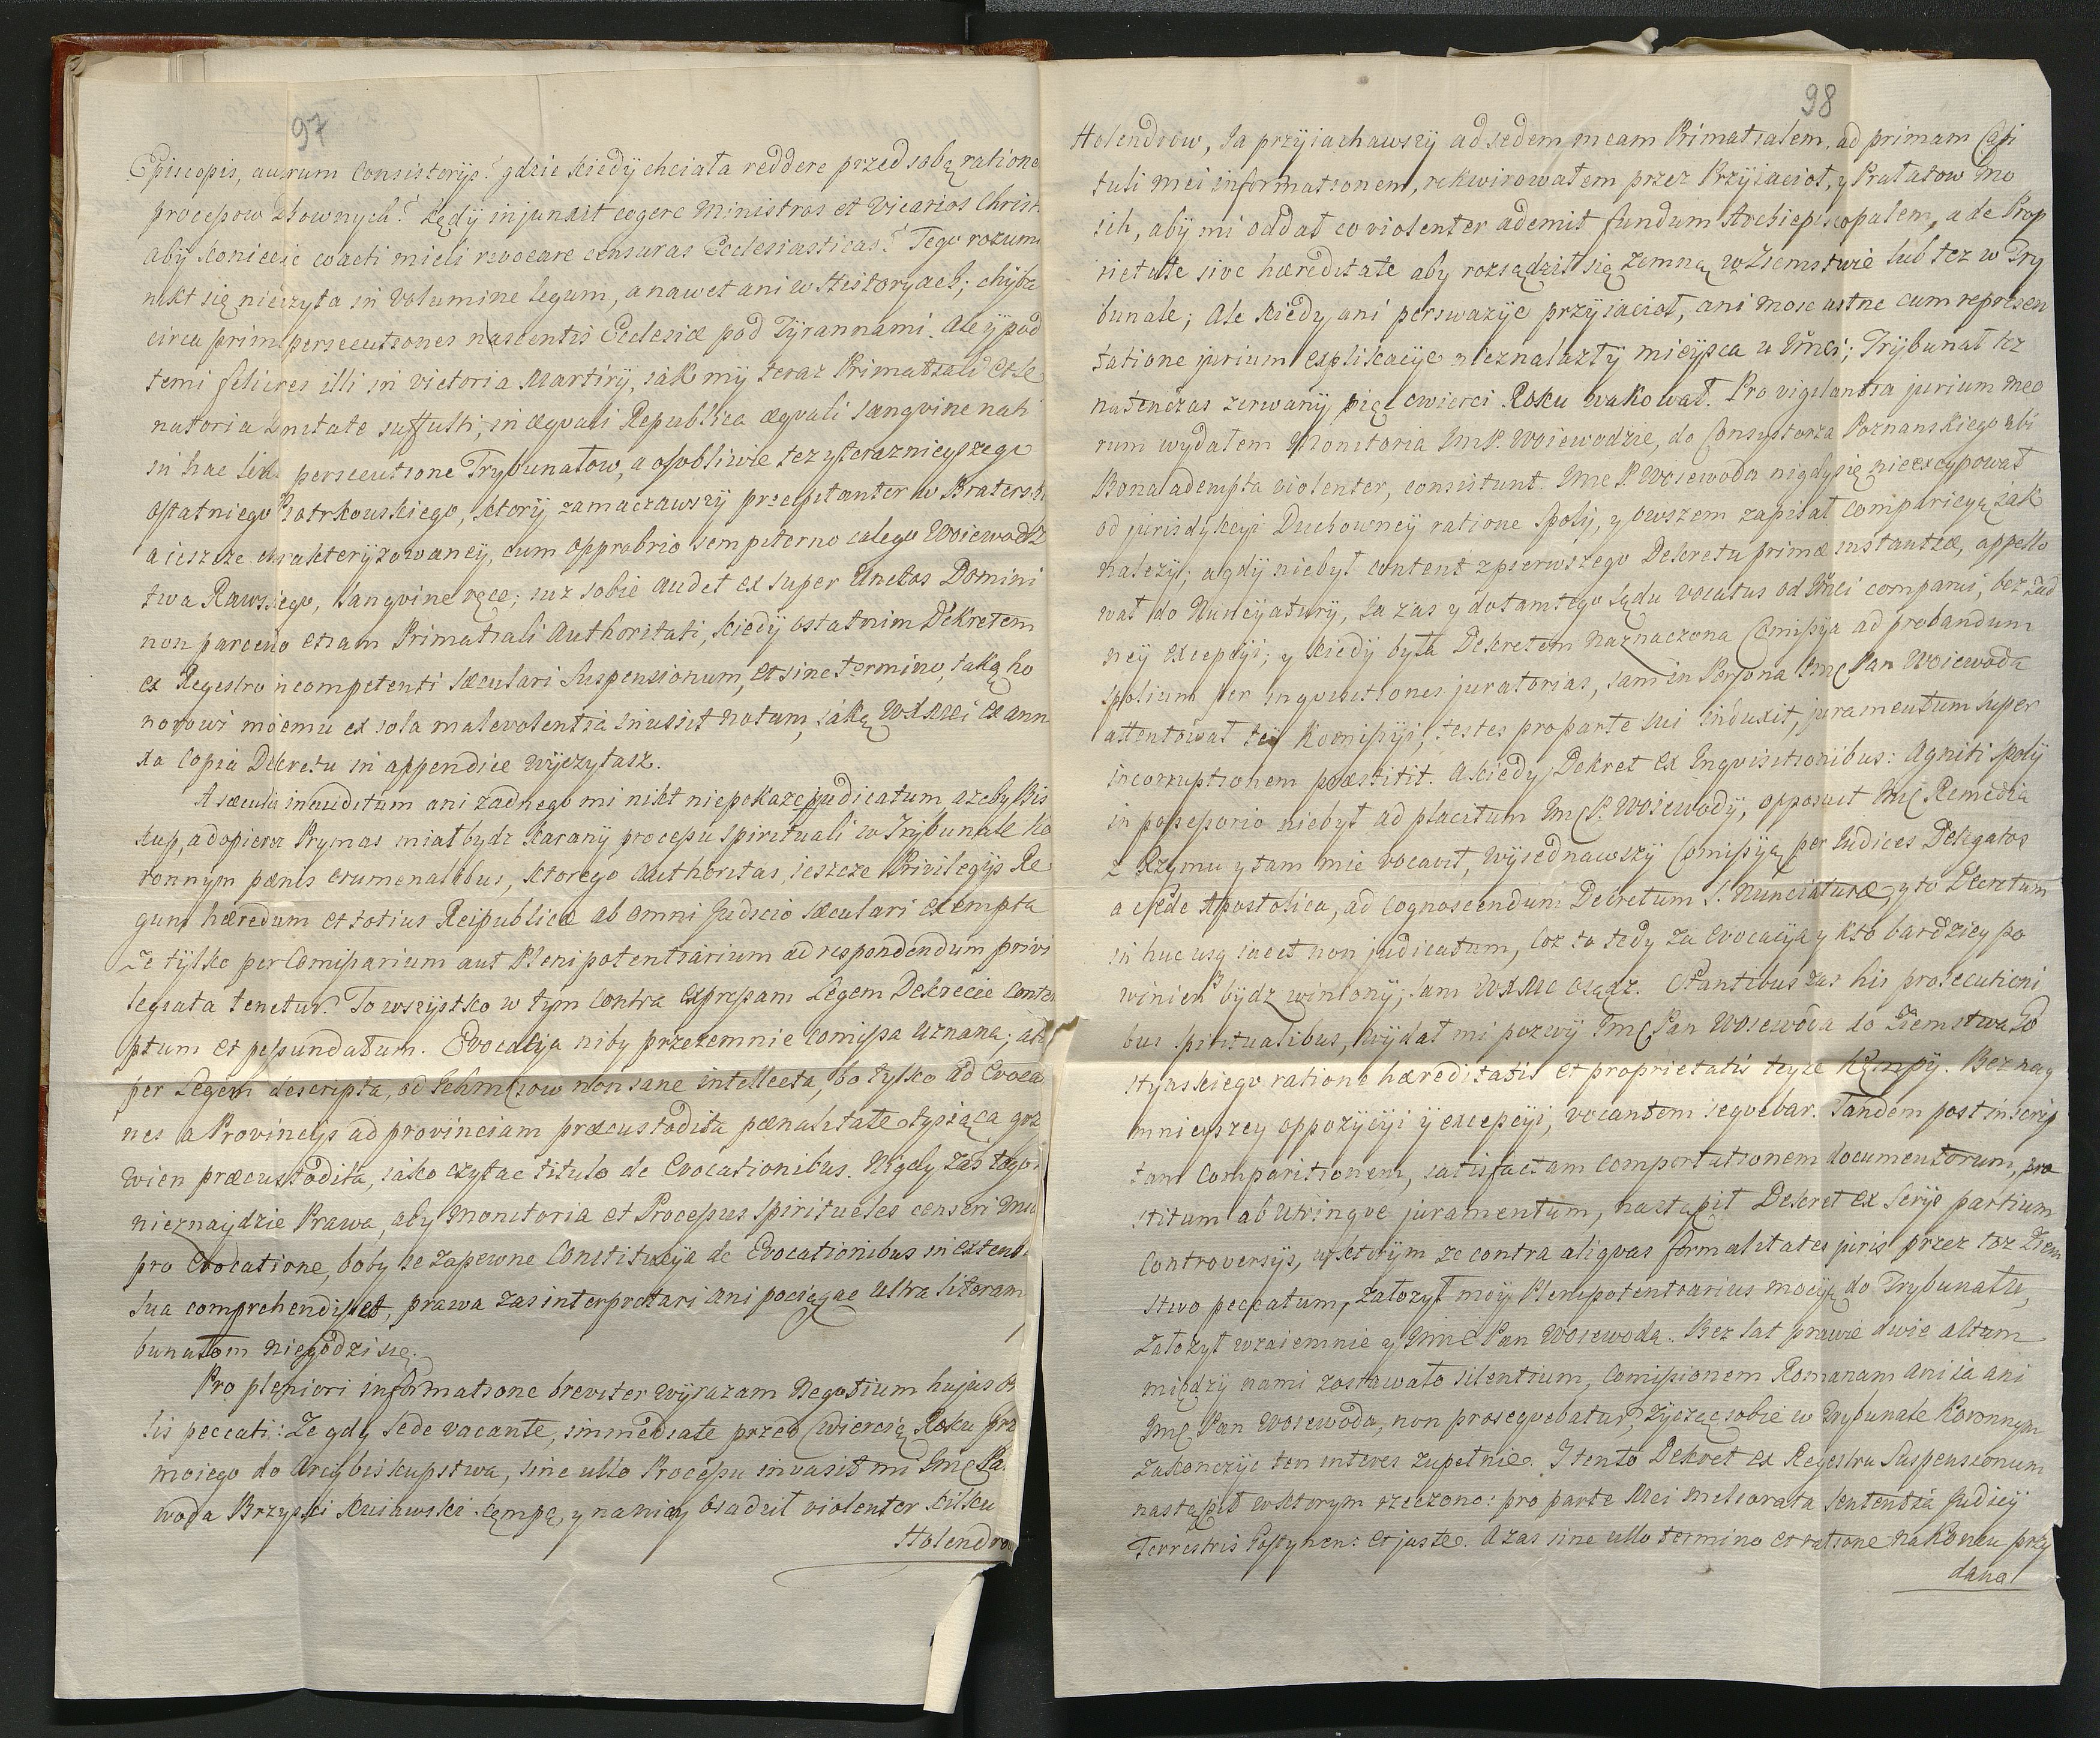 97
Episcopis, aut rum Consistorijs? gdzie kiedÿ chciała reddere przed sobą ratione
processow Dłownych? kędÿ injunxit cogere Ministros et Vicarios Christi
abÿ koniecie coacti mieli revocare censuras Ecclesiasticas? Tego rozumi
nikt się nieczyta in Volumine legum, a nawet ani w Historyach; chÿba
circa prim persecutiones nascentis Ecclesiæ pod Tÿrannami. Ale ÿ pod
temi felicres illi in victoria Martirÿ, iak mÿ teraz Primatiali et Se
natoria Dnitate suffulti, in æqvali Republica æqvali sangvine nati
in hac persecutione Trybunałow, a osobliwie tez y terazniejszego
ostatniego Piotrkowskiego, ktorÿ zamaczawszÿ præcipitanter w Bratersk
a ieszcze charakterÿzowanÿ, cum opprobrio sempiterno całego Woiewodz
twa Rawskiego, sangvine ręce; iuz sobie audet ex super Unctos Domini
non parcendo etiam Primatiali Authoritati, kiedÿ ostatnim Dekretem
ex Regestro incompetenti sæculari Suspensionum, et sine termino, taką ho
norowi moiemu ex sola malevolentia iniussit notam, iaką WXMci ex ann
xa Copia Dekretu in appendice wÿczytasz.
A sæculis inauditum ani zadnego mi nikt niepokaze judicatum azeby Bis
kup, a dopiero Prymas miał bydz karanÿ processu spirituali w Trÿbunale Ko
ronnym pœnis crumenalibus, ktorego Authoritas, ieszcze Privilegijs Re
gum hæredum et totius Reipublicæ ab omni Judicio sæculari exempta
ze tÿlko per Comissarium aut Plenipotentiarium ad respondendum privi
legiata tenetur. To wszÿstko w tÿm contra expressam Legem Dekrecie Conte
ptum et pessundatum. Evocacÿa niby przezemnie Comissa uznana; ale
per Legem descripta, od Ichmciow non sane intellecta, bo tÿlko ad Evoca
nes a Provincijs ad provinciam præcustodita pœnalitate tysiąca grz
wien præcustodita, iako czytac titulo de Evocationibus. Nigdy zas tego
nieznaÿdzie Prawa, aby Monitoria et Processus Spirituales censeri mia
pro Evocatione, boby ie zapewne Constitucÿa de Evocationibus in extens
sua comprehendisset, prawa zas interpretari ani pociągac ultra literam
bunałom niegodzi się.
Pro pleniori informatione breviter wÿrazam Negotium hujus
lis peccati: Ze gdy sede vacante, immediate przed cwiercią Roku prz
moiego do Arcybiskupstwa, sine ullo Processu invasit mi Jmć Pa
woda Brzyski Kuiawski kempę, y na niey osadził violenter kilku
Holendro
98
Holendrow, Ja przÿiachawszÿ ad sedem meam Primatialem, ad primam Capi
tuli mei informationem, rekwirowałem przez Przÿiacioł, y Prałatow mo
ich, abÿ mi oddał co violenter ademit fundum Archiepiscopalem, a de Prop
rietate sive hæreditate aby rozsądził się zemną w Ziemstwie lub tez w Try
bunale; Ale kiedy ani perswazÿe przÿiacioł, ani moie ustne cum represen
tatione jurium explikacÿe nieznalazłÿ mieÿsca u Jmci; Trÿbunał tez
natenczas zerwanÿ pięc cwierci Roku wakował. Pro vigilantia jurium meo
rum wydałem Monitoria Jm P. Woiewodzie, do Consystorza Poznanskiego ubi
Bona adempta violenter, consistunt. Jmc P. Woiewoda nigdy się nieexcypował
od jurisdykcyi Duchowneÿ ratione spolÿ, y owszem zapisał comparicyą iak
nalezÿ; a gdÿ niebÿł content z pierwszego Dekretu primæ instantiæ, appello
wał do Nuncÿaturÿ, Ja zas y do tamtego sądu vocatus od Jmci comparui, bez zad
neÿ excepcÿi; y kiedÿ była Dekretem naznaczona Comissÿa ad probandum
spolium per inqvisitiones juratorias, sam in Persona Jmć Pan Woiewoda
attentował teÿ Komissÿi, testes pro parte sui induxit, juramentum super
incorruptionem præstitit. A kiedy Dekret ex Inqvisitionibus: agniti spolÿ
in possessorio niebÿł ad placitum Jmć P. Woiewodÿ, opposuit Jmć Remedia
z Rzymu y tam mie vocavit, wÿiednawszÿ Comissÿą per Judices Delegatos
a Sede Apostolica, ad cognoscendum Decretum S. Nunciaturæ, y to Decretum
in huc usq iacet non judicatum, Coz to tedy za Evocacÿa y kto bardziey po
winien bÿdz winionÿ, sam WXMc osądz. Stantibus zas his prosecutioni
bus spiritualibus, wÿdał mi pozwÿ Jmć Pan Woiewoda do Ziemstwa Go
stynskiego ratione hæreditatis et proprietatis teyze Kempÿ. Bez nay
mnieyszey oppozycÿi ÿ excepcÿi, vocantem seqvebar. Tandem post inscrip
tam Comparitionem, satisfactam comportationem documentorum, præ
stitum ab utrinqve juramentum, nastąpił Dekret ex serijs partium
Controversijs, w ktorÿm ze contra aliqvas formalitates juris przez toz Ziem
stwo peccatum, załozył moÿ Plenipotentiarius mocÿą do Trybunału,
załozył wzaiemnie y Jmć Pan Woiewoda. Bez lat prawie dwie altum
między nami zostawało silentium, Comissionem Romanam ani ia ani
Jmć Pan Woiewoda, non proseqvebatur, zÿcząc sobie w Trybunale Koronnym
zakonczÿc ten interes zupełnie. I tento Dekret ex Regestro Suspensionum
nastąpił w ktorym rzeczono: pro parte Mei meliorata sententia Judicÿ
Terrestris Gostynen: et juste. A zas sine ullo termino et ratione na koncu przy
dana